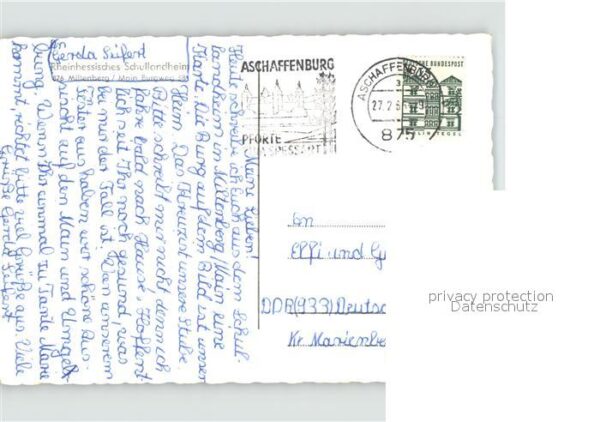 Gerda Seifert
Rheinhessisches Schullandheim
876 Miltenberg / Main Burgweg
Meine Lieben!
Heute schreibe ich Euch aus dem Schul-
landheim in Miltenberg/Main eine
Karte. Die Burg auf dem Bild ist unser
Heim. Das Kreuz ist unsere Stube.
Bitte schreibt mir nicht denn ich
fahre bald nach Hause. Hoffent-
lich seit Ihr noch gesund, was
bei mir der Fall ist. Von unserem
Fenster aus haben wir schöne Aus-
sicht auf den Main und Umge-
bung. Wenn Ihr einmal zu Tante Marie
kommt, richtet bitte viel Grüße aus. Viele
Grüße Gerda Seifert
ASCHAFFENBURG
PFORTE
SPESSART
ASCHAFFENBURG
27.2.6
875
DEUTSCHE BUNDESPOST
TEGEL
An
Elfi und
DDR (933) Deutsc
Kr. Marienber
privacy protection
Datenschutz